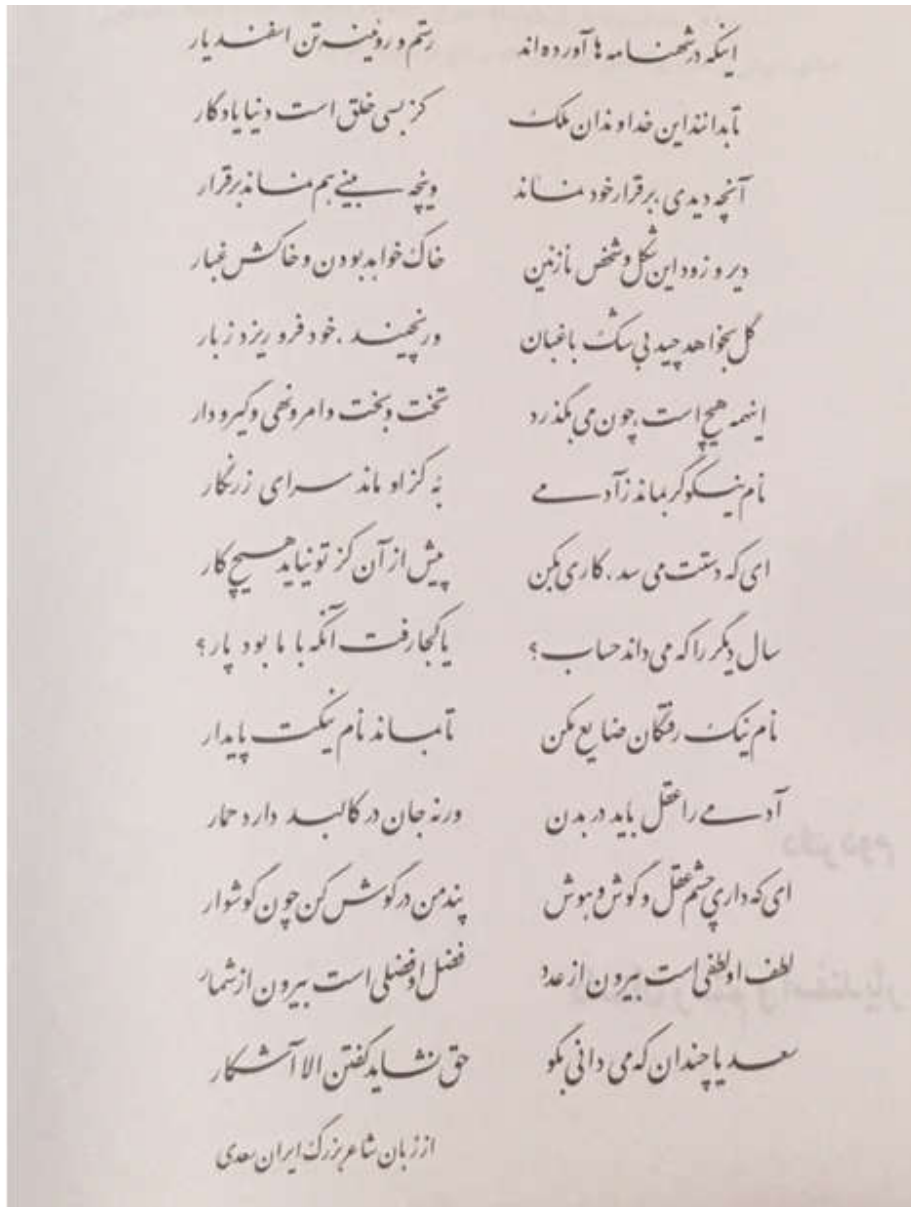 اینکه در شهنامه ها آورده اند رستم و روئینه تن اسفندیار
تا بدانند این خداوندان ملک کز بسی خلق است دنیا یادگار
آنچه دیدی، برقرار خود نماند وینچه بینی هم نماند برقرار
دیر و زود این شکل و شخص نازنین خاک خواهد بودن و خاکش غبار
گل بخواهد چید بی شک باغبان ور نچیند، خود فرو ریزد ز بار
اینهمه هیچ است، چون می بگذرد تخت و بخت و امر و نهی و گیر و دار
نام نیکو گر بماند ز آدمی به کز او ماند سرای زرنگار
ای که دستت می سد، کاری بکن پیش از آن کز تو نیاید هیچ کار
سال دیگر را که می داند حساب؟ یا کجا رفت آنگه با ما بود پار؟
نام نیک رفتگان ضایع مکن تا بماند نام نیکت پایدار
آدمی را عقل باید در بدن ورنه جان در کالبد دارد حمار
ای که داری چشم عقل و گوش و هوش پند من در گوش کن چون گوشوار
لطف او لطفی است بیرون از عدد فضل او فضلی است بیرون از شمار
سعدیا چندان که می دانی بگو حق نشاید گفتن الا آشکار
از زبان شاعر بزرگ ایران سعدی
دفتر دوم